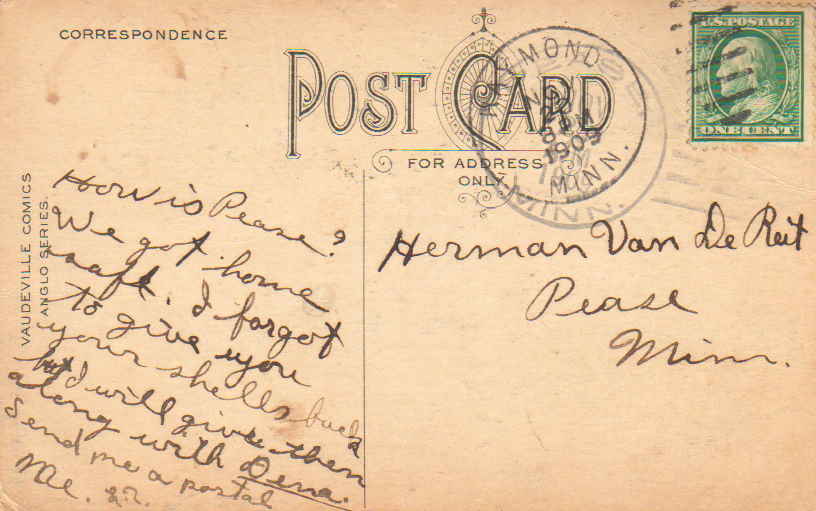 CORRESPONDENCE
POST CARD
FOR ADDRESS
ONLY.
U.S. POSTAGE
ONE CENT
RAYMOND
NOV
8 PM
1909
MINN.
MINN.
VAUDEVILLE COMICS
ANGLO SERIES.
How is Pease?
We got home
saaft. I forgot
to give you
your shells back
but I will give them
along with Dena.
Send me a postal
Herman Van De Reit
Pease
Minn.